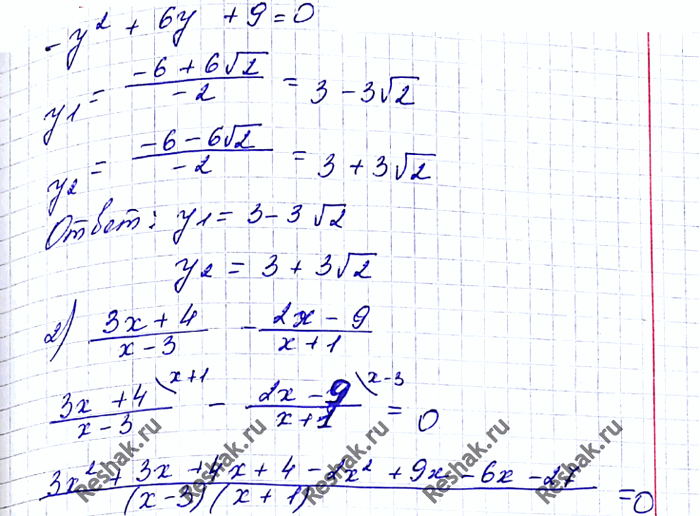 -y² + 6y + 9 = 0
y1 = (-6 + 6√2)/(-2) = 3 - 3√2
y2 = (-6 - 6√2)/(-2) = 3 + 3√2
Ответ: y1 = 3 - 3√2
y2 = 3 + 3√2
2) (3x + 4)/(x - 3) - (2x - 9)/(x + 1)
(3x + 4)/(x - 3) \x+1 - (2x - 9)/(x + 1) \x-3 = 0
(3x² + 3x + 4x + 4 - 2x² + 9x - 6x - 27)/((x - 3)(x + 1)) = 0
Reshak.ru Reshak.ru Reshak.ru Reshak.ru